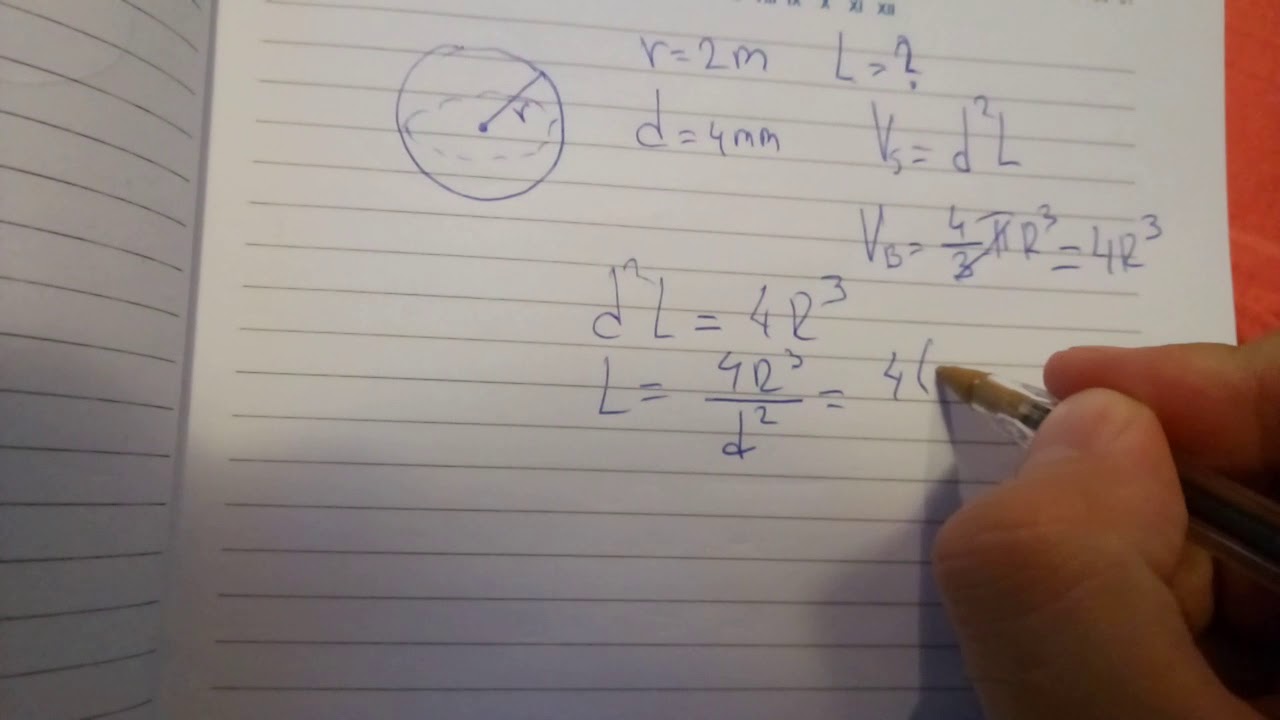 XI XII
r = 2m L = ?
r
d = 4mm V_s = d²L
V_B = 4/3 π R³ = 4R³
d²L = 4R³
L = 4R³/d² = 4(